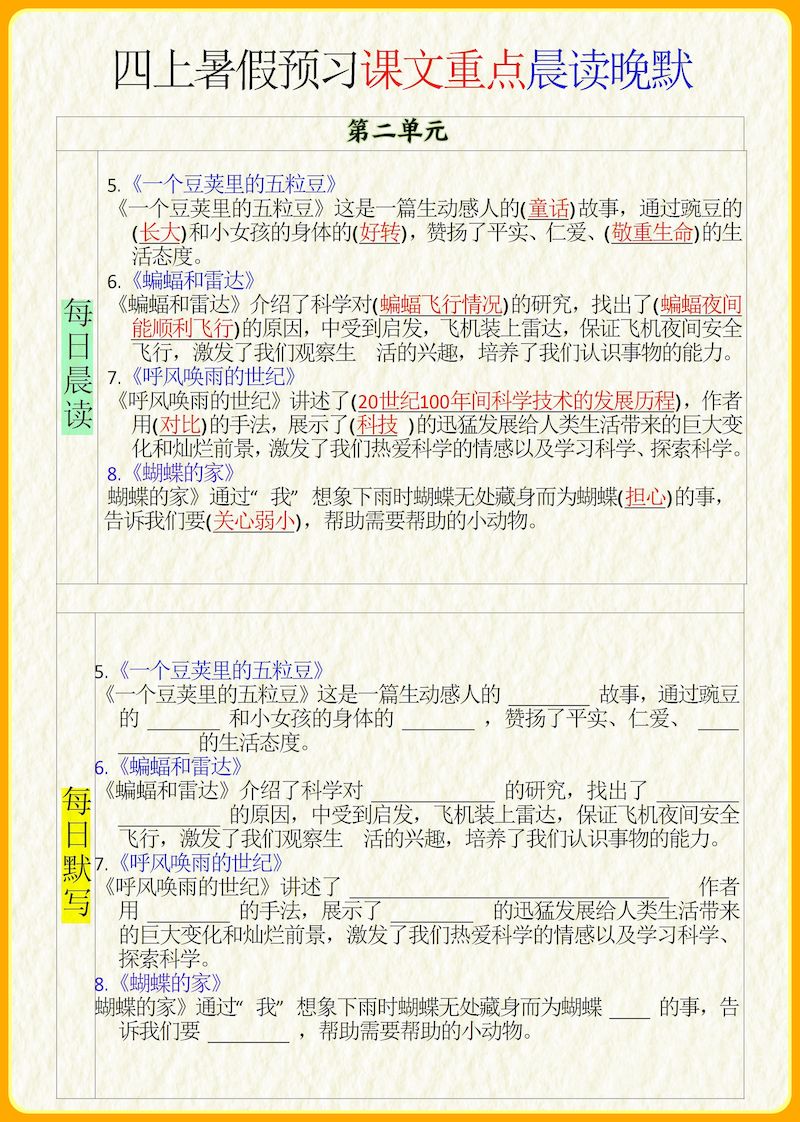 四上暑假预习课文重点晨读晚默
第二单元
每日晨读
5.《一个豆荚里的五粒豆》
《一个豆荚里的五粒豆》这是一篇生动感人的(童话)故事，通过豌豆的
(长大)和小女孩的身体的(好转)，赞扬了平实、仁爱、(敬重生命)的生
活态度。
6.《蝙蝠和雷达》
《蝙蝠和雷达》介绍了科学对(蝙蝠飞行情况)的研究，找出了(蝙蝠夜间
能顺利飞行)的原因，中受到启发，飞机装上雷达，保证飞机夜间安全
飞行，激发了我们观察生　活的兴趣，培养了我们认识事物的能力。
7.《呼风唤雨的世纪》
《呼风唤雨的世纪》讲述了(20世纪100年间科学技术的发展历程)，作者
用(对比)的手法，展示了(科技 )的迅猛发展给人类生活带来的巨大变
化和灿烂前景，激发了我们热爱科学的情感以及学习科学、探索科学。
8.《蝴蝶的家》
蝴蝶的家》通过“ 我” 想象下雨时蝴蝶无处藏身而为蝴蝶(担心)的事，
告诉我们要(关心弱小)，帮助需要帮助的小动物。
每日默写
5.《一个豆荚里的五粒豆》
《一个豆荚里的五粒豆》这是一篇生动感人的 ________ 故事，通过豌豆
的 ________ 和小女孩的身体的 _______ ，赞扬了平实、仁爱、 ____
_______ 的生活态度。
6.《蝙蝠和雷达》
《蝙蝠和雷达》介绍了科学对 ____________ 的研究，找出了 _________
__________ 的原因，中受到启发，飞机装上雷达，保证飞机夜间安全
飞行，激发了我们观察生　活的兴趣，培养了我们认识事物的能力。
7.《呼风唤雨的世纪》
《呼风唤雨的世纪》讲述了 ________________________________ 作者
用 ________ 的手法，展示了 ________ 的迅猛发展给人类生活带来
的巨大变化和灿烂前景，激发了我们热爱科学的情感以及学习科学、
探索科学。
8.《蝴蝶的家》
蝴蝶的家》通过“ 我” 想象下雨时蝴蝶无处藏身而为蝴蝶 ____ 的事，告
诉我们要 ________ ，帮助需要帮助的小动物。